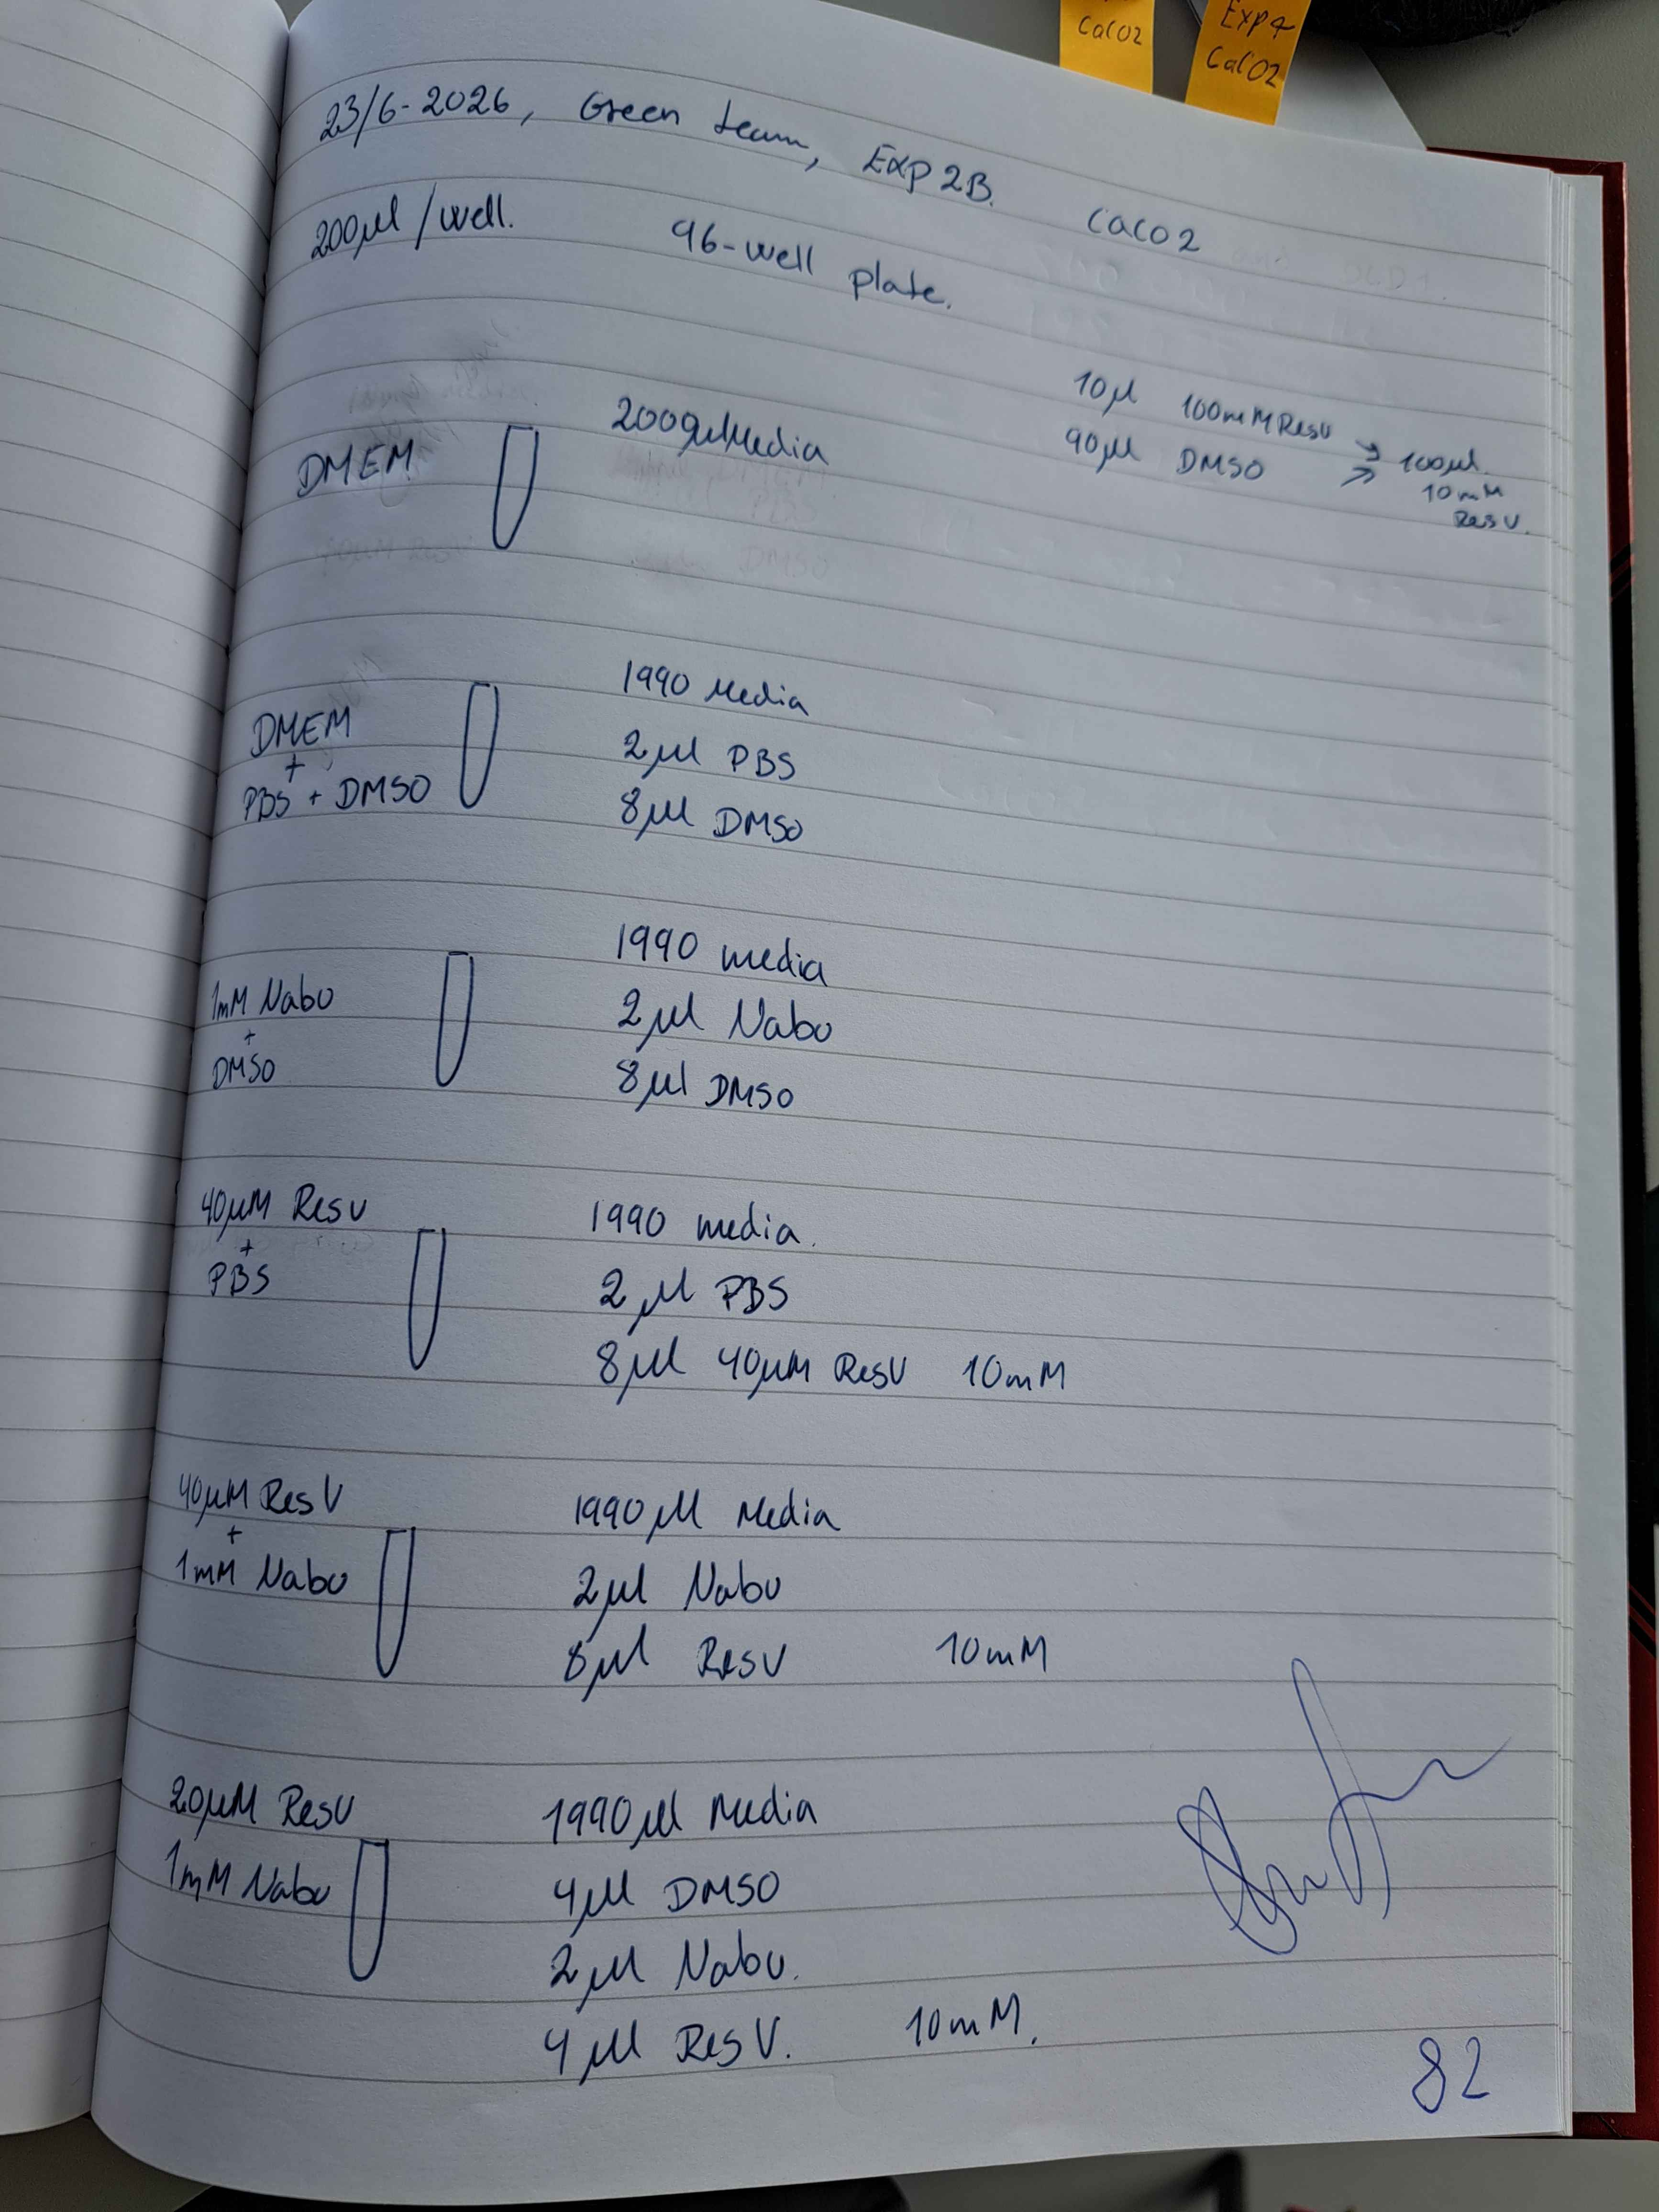 CaCO2
Exp 4
CaCO2
23/6-2026, Green team, Exp 2B. CaCO2
200µl/well. 96-well plate.
DMEM
2000µl Media
10µl 100mM ResV
90µl DMSO
100µl
10mM
ResV.
DMEM
+
PBS + DMSO
1990 Media
2µl PBS
8µl DMSO
1mM Nabu
+
DMSO
1990 media
2µl Nabu
8µl DMSO
40µM ResV
+
PBS
1990 media.
2µl PBS
8µl 40µM ResV 10mM
40µM ResV
+
1mM Nabu
1990µl Media
2µl Nabu
8µl ResV 10mM
20µM ResV
1mM Nabu
1990µl Media
4µl DMSO
2µl Nabu.
4µl ResV. 10mM.
82